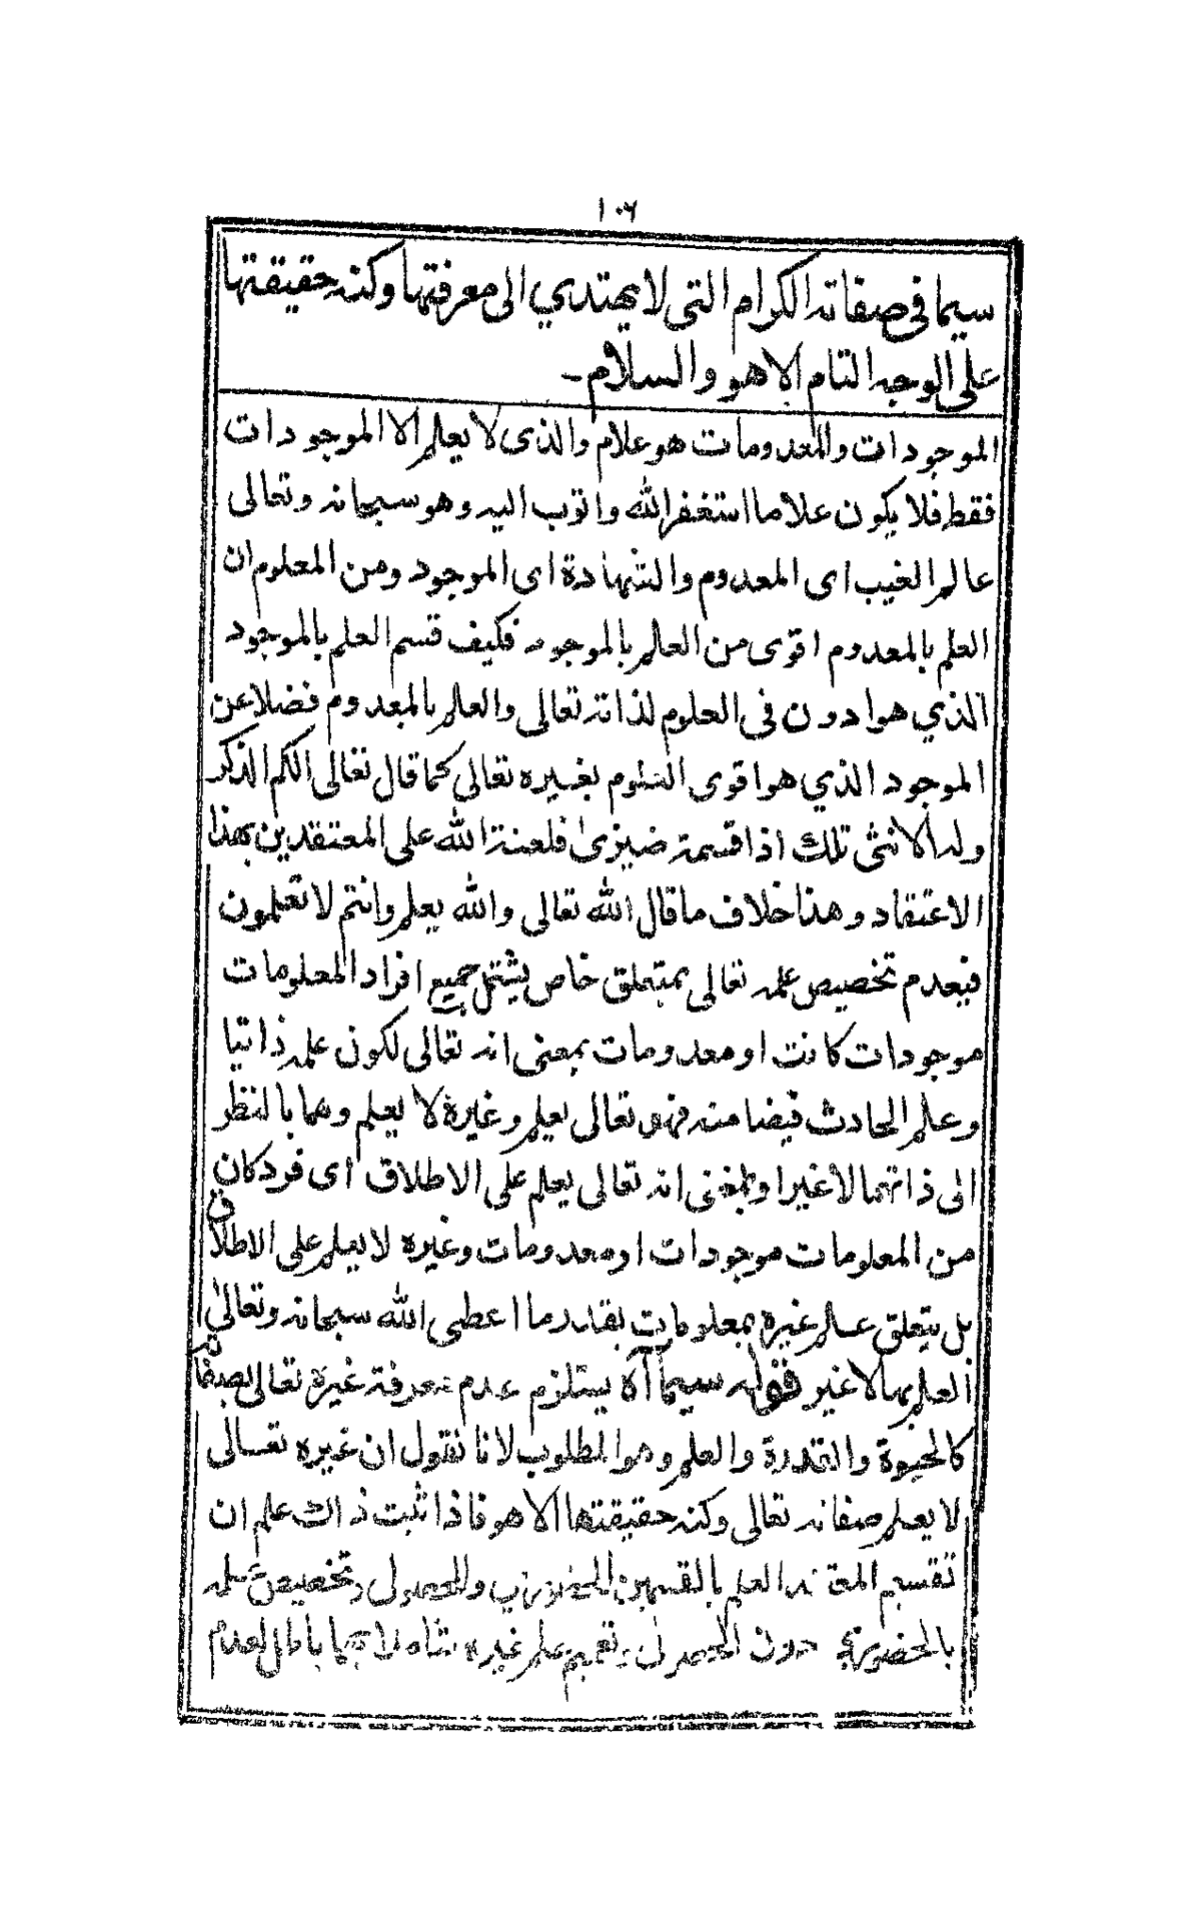 ١٠٦
سيما في صفاته الكرام التي لا يهتدي الى معرفتها وكنه حقيقتها
على الوجه التام الا هو والسلام ـ
الموجودات والمعدومات هو علام والذى لا يعلم الا الموجودات
فقط فلا يكون علاما استغفر الله واتوب اليه وهو سبحانه وتعالى
عالم الغيب اى المعدوم والشهادة اى الموجود ومن المعلوم ان
العلم بالمعدوم اقوى من العالم بالموجود فكيف قسم العلم بالموجود
الذي هو ادون فى العلوم لذاته تعالى والعالم بالمعدوم فضلا عن
الموجود الذي هو اقوى العلوم بغيره تعالى كما قال تعالى الكم الذكر
وله الانثى تلك اذا قسمة ضيزى فلعنة الله على المعتقدين بهذا
الاعتقاد وهذا خلاف ما قال الله تعالى والله يعلم وانتم لا تعلمون
فبعدم تخصيص علمه تعالى بمتعلق خاص يشتمل جميع افراد المعلومات
موجودات كانت او معدومات بمعنى انه تعالى لكون علمه ذاتيا
وعلم الحادث فيضا منه فهو تعالى يعلم وغيره لا يعلم وهما بالنظر
الى ذاتهما لا غير او بمعنى انه تعالى يعلم على الاطلاق اى فرد كان
من المعلومات موجودات او معدومات وغيره لا يعلم على الاطلاق
بل يتعلق عالم غيره بمعلومات بقدر ما اعطى الله سبحانه وتعالى
العلم بها لا غير قوله سيما آه يستلزم عدم معرفة غيره تعالى بصفاته
كالحيوة والقدرة والعلم وهو المطلوب لانا نقول ان غيره تعالى
لا يعلم صفاته تعالى وكنه حقيقتها الا هو فاذا ثبت ذاك علم ان
تقسيم العلم بالقسمين الحضوري والحصولى وتخصيص علمه
بالحضوري دون الحصولى وتعميم علم غيره باطل لعدم